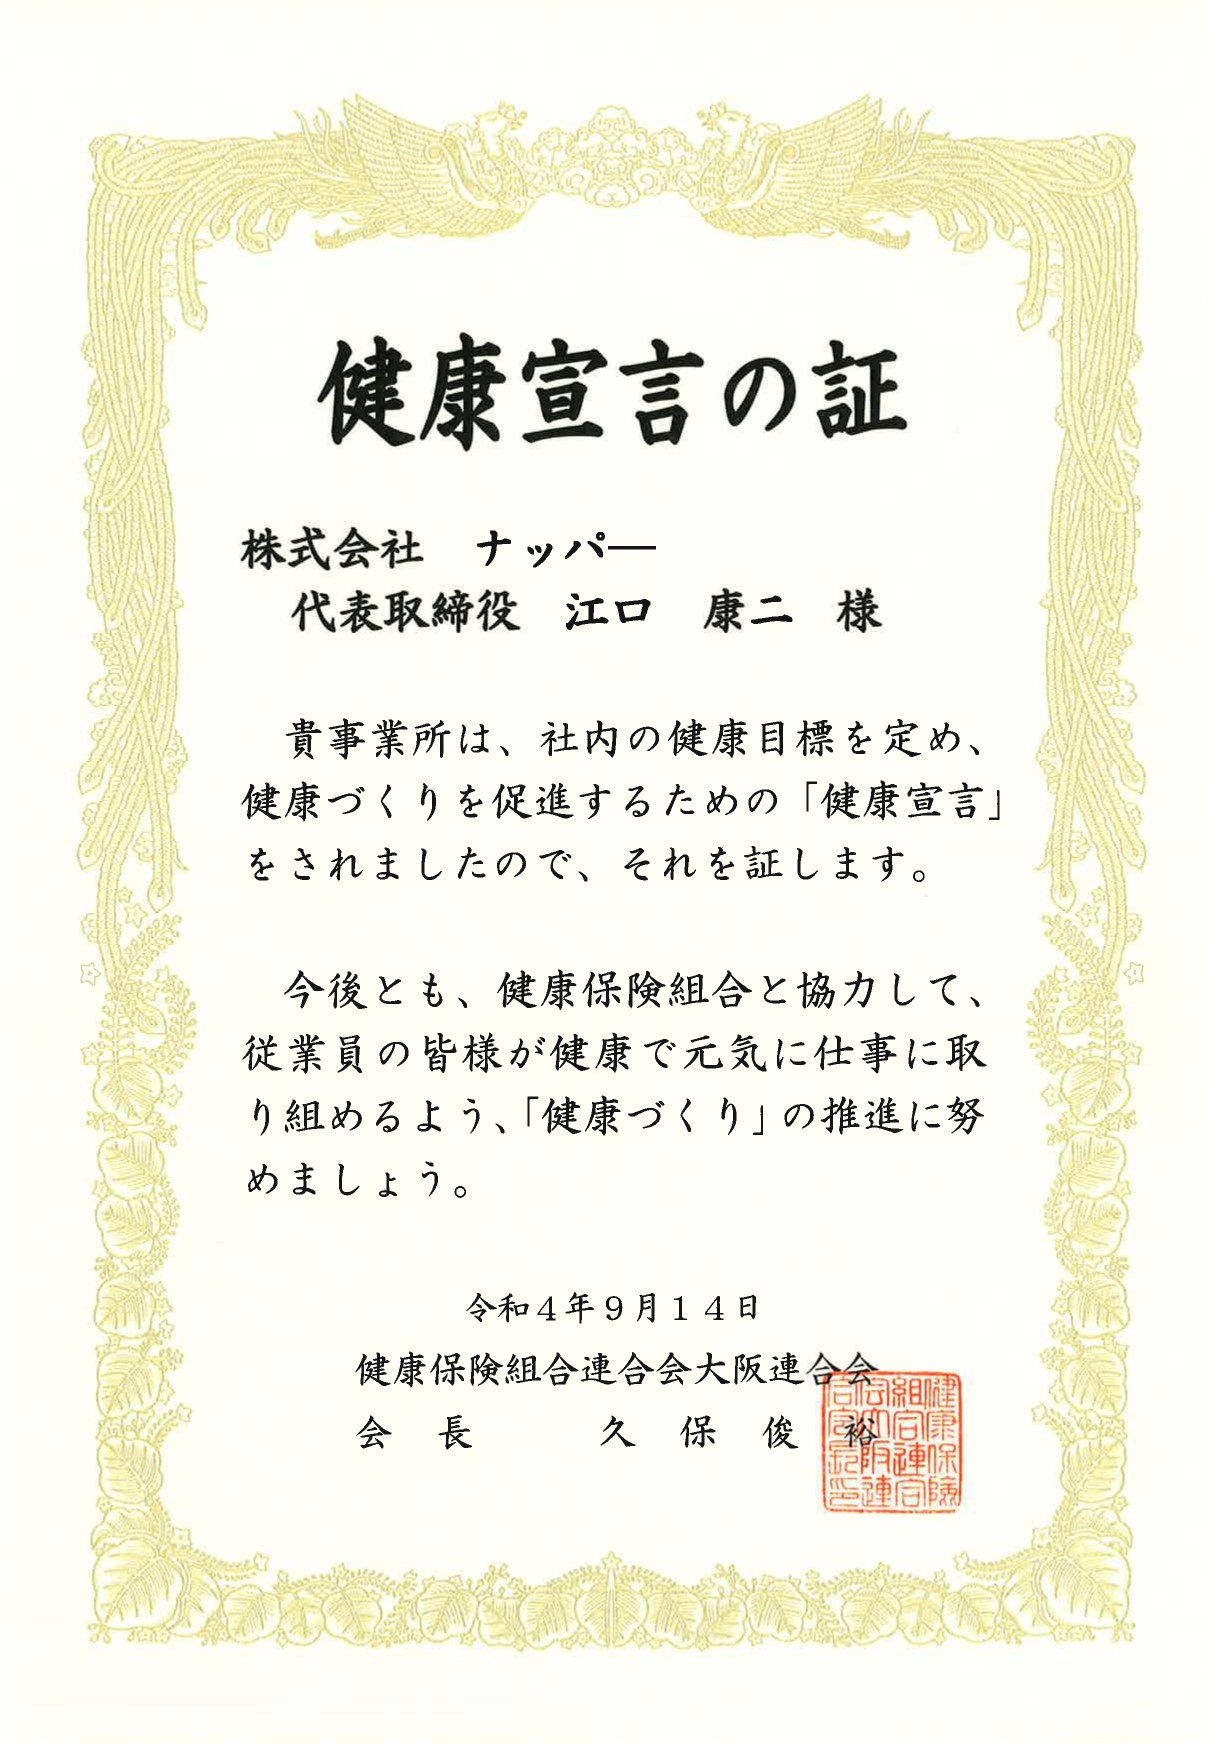 健康宣言の証
株式会社　ナッパー
代表取締役　江口　康二　様
貴事業所は、社内の健康目標を定め、
健康づくりを促進するための「健康宣言」
をされましたので、それを証します。
今後とも、健康保険組合と協力して、
従業員の皆様が健康で元気に仕事に取
り組めるよう、「健康づくり」の推進に努
めましょう。
令和４年９月１４日
健康保険組合連合会大阪連合会
会　長　　　久　保　俊　裕
健康保険
組合連合
会大阪連
合会長印